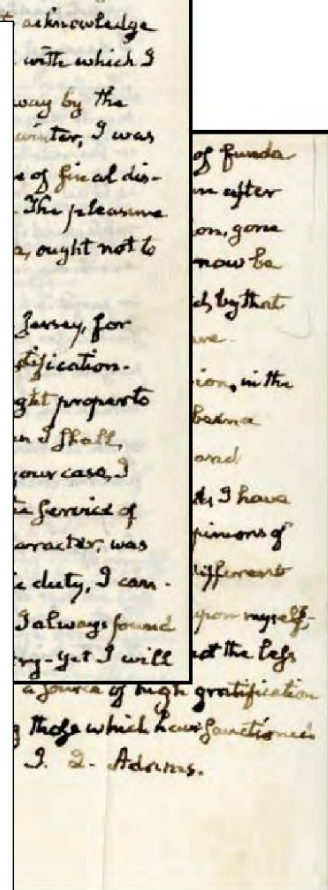 acknowledge
with which I
way by the
winter, I was
of fiscal dis-
The pleasure
ought not to
Jersey, for
tification.
ght proper to
I shall,
your case, I
Service of
aracter, was
duty, I can-
I always found
ry - yet I will
of funda
after
on, gone
now be
by that
ion, in the
and
I have
pinions of
different
upon myself.
not the less
a source of high gratification
those which have sanctioned
J. Q. Adams.